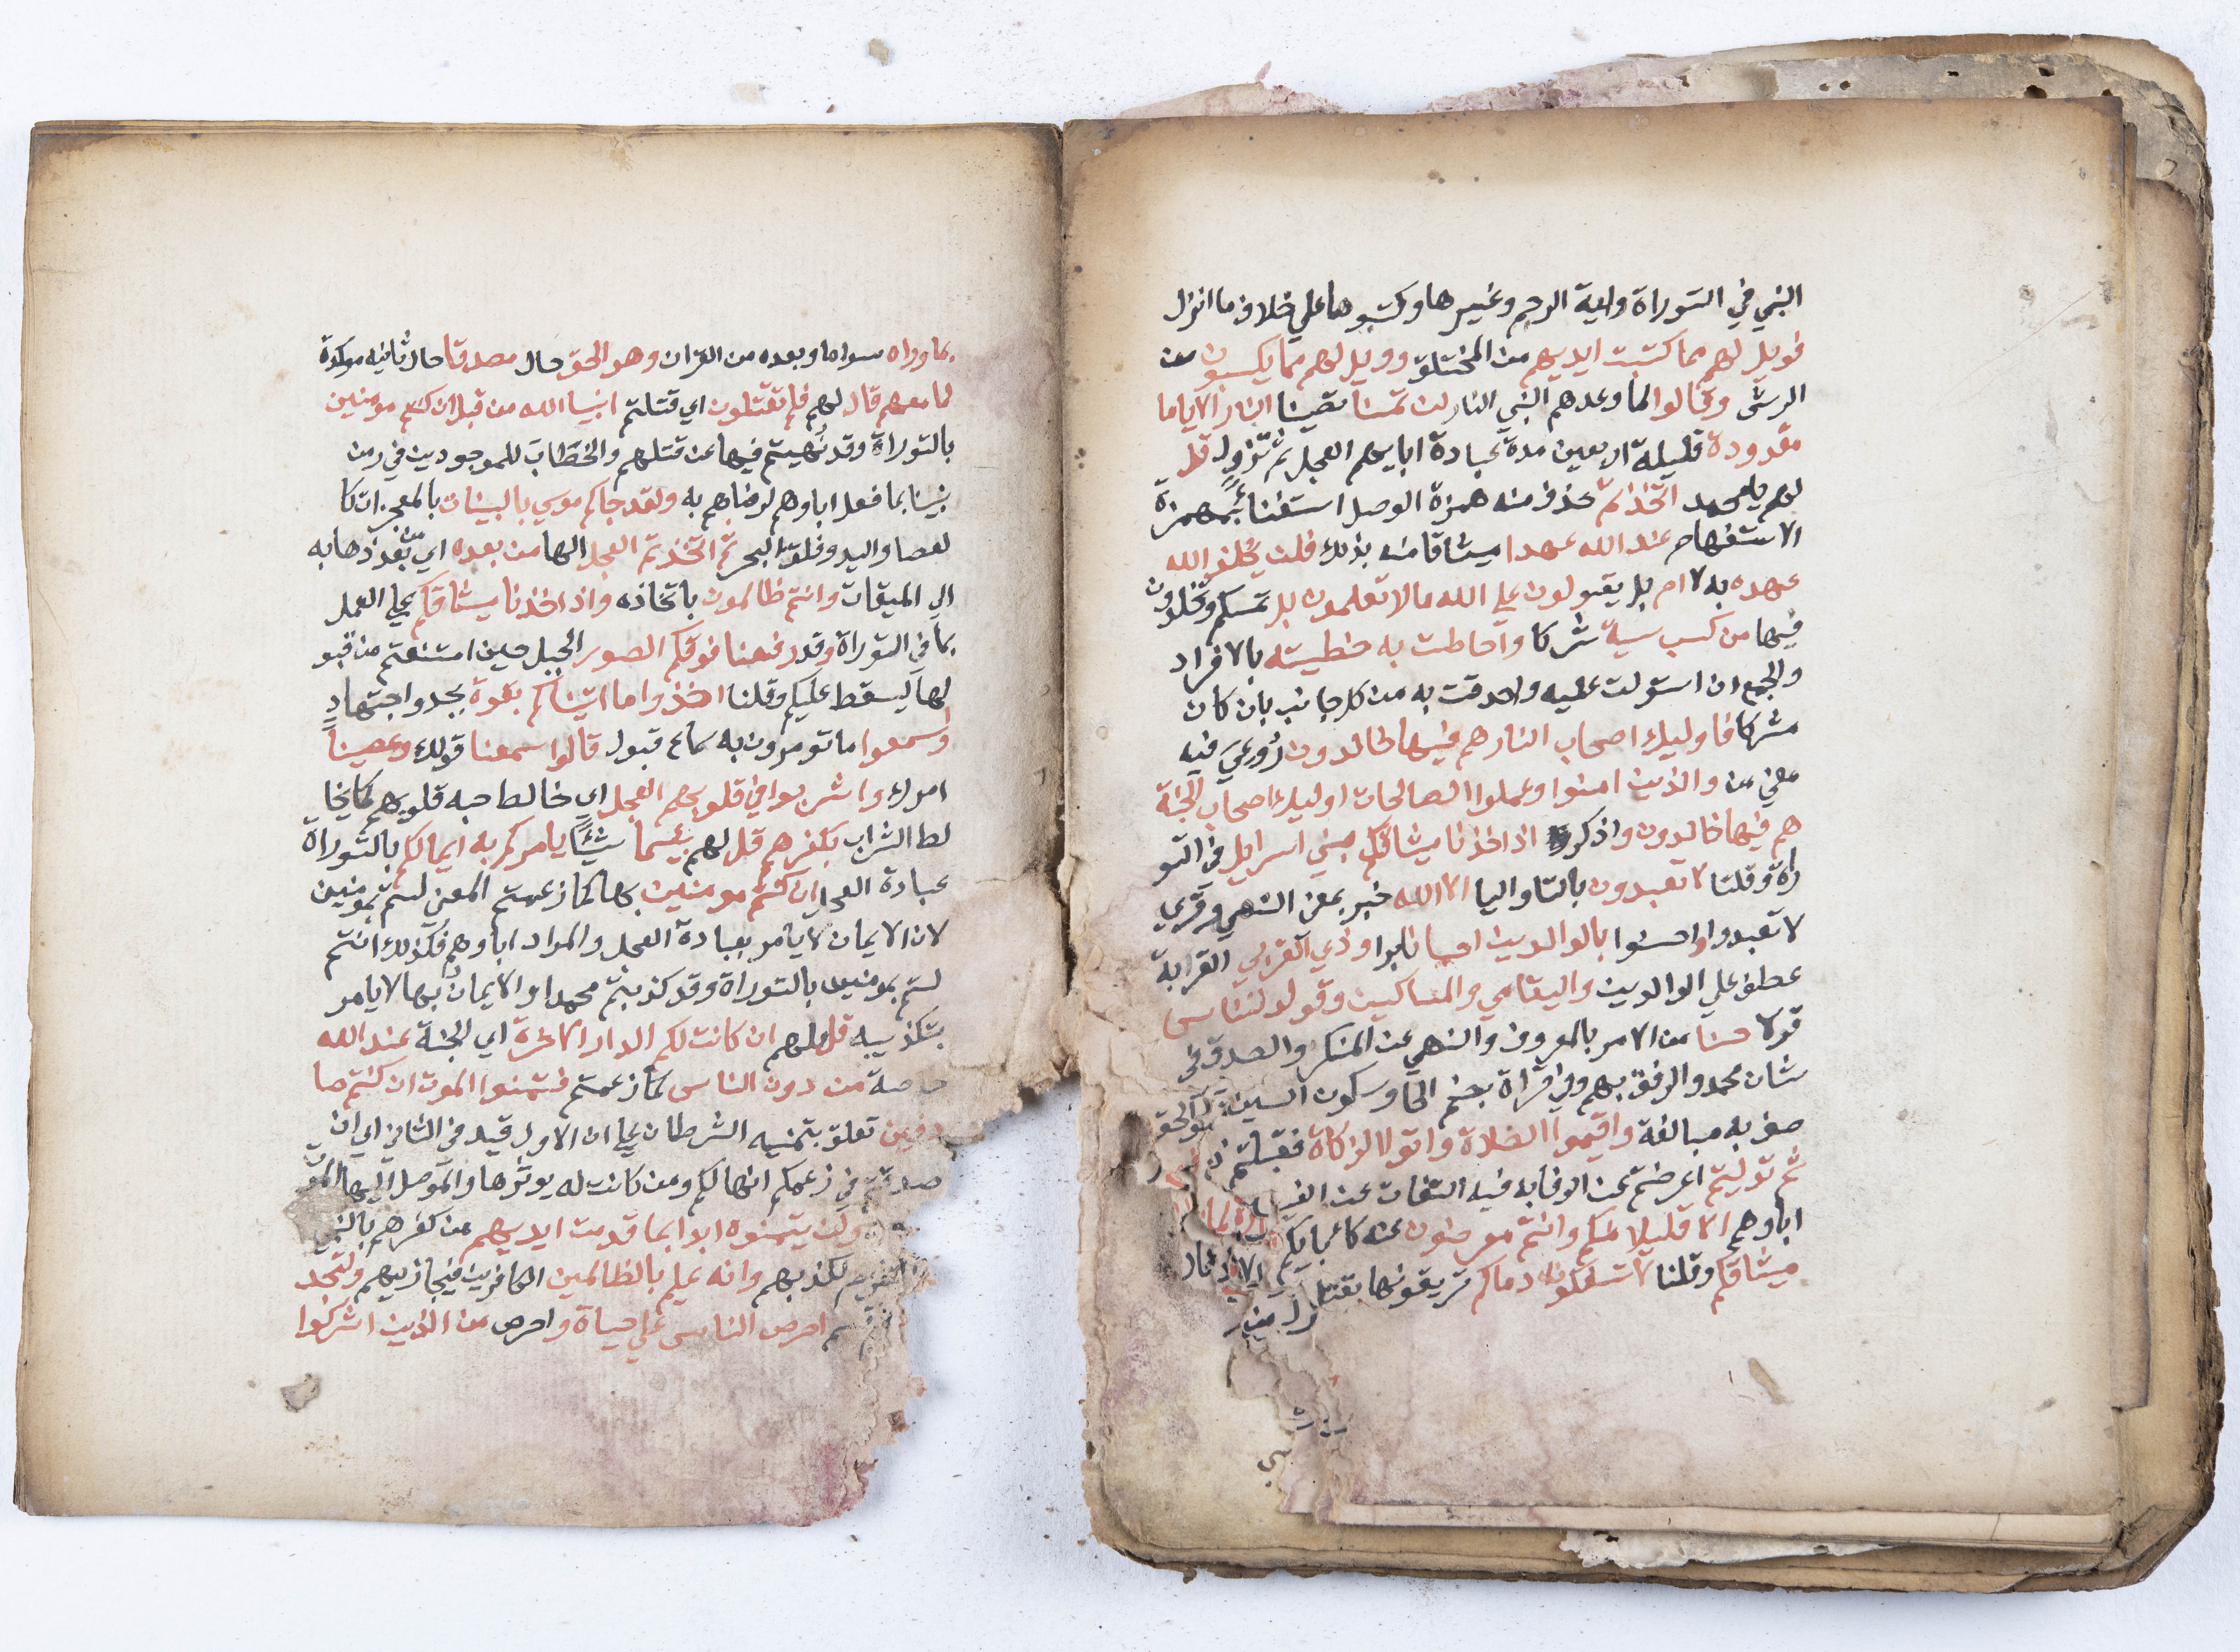 النبي في التوراة واية الرجم وغيرها وكتبوها علي خلاف ما انزل
فويل لهم مما كتبت ايديهم من المختلق وويل لهم مما يكسبون من
الرشى وقالوا لما وعدهم النبي النار لن تمسنا تصيبنا النار الا اياما
معدودة قليلة اربعين مدة عبادة ابايهم العجل ثم تزول قل
لهم يا محمد اتخذتم حذف منه همزة الوصل استغنا بهمزة
الاستفهام عند الله عهدا ميثاقا منه بذلك فلن يخلف الله
عهده به لا ام بل يقولون علي الله ما لا تعلمون بل تمسكم وتخلدون
فيها من كسب سية شركا واحاطت به خطيته بالافراد
والجمع ان استولت عليه واحدقت به من كل جانب بان كان
مشركا فاوليك اصحاب النار هم فيها خالدون روعي فيه
معني من والذين امنوا وعملوا الصالحات اوليك اصحاب الجنة
هم فيها خالدون واذكر اذ اخذنا ميثاقكم بني اسرايل في التو
راة وقلنا لا تعبدون بالتا واليا الا الله خبر بمعني النهي وقري
لا تعبدوا واحسنوا بالوالدين احسانا برا وذي القربي القرابة
عطف علي الوالدين واليتامي والمساكين وقولو للناس
قولا حسنا من الامر بالمعروف والنهي عن المنكر والصدق في
شان محمد والرفق بهم وفي قراة بضم الحا وسكون السين
صف به مبالغة واقيموا الصلاة واتوا الزكاة فقبلتم
ثم توليتم اعرضتم عن الوفا به فيه التفات عن
اباوهم الا قليلا منكم وانتم معرضون عنه كابايكم
ميثاقكم وقلنا لا تسفكون دماكم تريقونها بقتل
بما وراه سواه او بعده من القران وهو الحق حال مصدقا حال ثانيه موكدة
لما معهم قال لهم فلم تقتلون اي قتلتم انبيا الله من قبل ان كنتم مومنين
بالتوراة وقد نهيتم فيها عن قتلهم والخطاب للموجودين في زمن
نبينا بما فعل اباوهم لرضاهم به ولقد جاكم موسي بالبينات بالمعجزات كا
لعصا واليد وفلق البحر ثم اتخذتم العجل الها من بعده اي من بعد ذهابه
الي الميقات وانتم ظالمون باتخاذه واذ اخذنا ميثاقكم علي العمل
بما في التوراة وقد رفعنا فوقكم الطور الجبل حين امتنعتم من قبو
لها ليسقط عليكم وقلنا اخذوا ما اتيناكم بقوة بجد واجتهاد
واسمعوا ما تومرون به سماع قبول قالوا سمعنا قولك وعصينا
امرك واشربوا في قلوبهم العجل اي خالط حبه قلوبهم كما يخا
لط الشراب بكفرهم قل لهم بيسما شيئا يامركم به ايمانكم بالتوراة
عبادة العجل ان كنتم مومنين بها كما زعمتم المعني لستم بمومنين
لان الايمان لا يامر بعبادة العجل والمراد اباوهم فكذلك انتم
لستم بمومنين بالتوراة وقد كذبتم محمدا والايمان بها لا يامر
بتكذيبه قل لهم ان كانت لكم الدار الاخرة اي الجنة عند الله
من دون الناس كما زعمتم فتمنوا الموت ان كنتم صا
دقين تعلق بتمنيه الشرطان علي ان الاول قيد في الثاني اي ان
صدقتم في زعمكم انها لكم ومن كانت له يوثرها والموصل اليها
ولن يتمنوه ابدا بما قدمت ايديهم من كفرهم بالنبي
لكذبهم وانه عليم بالظالمين الكافرين فيجازيهم ولتجد
احرص الناس علي حياة واحرص من الذين اشركوا